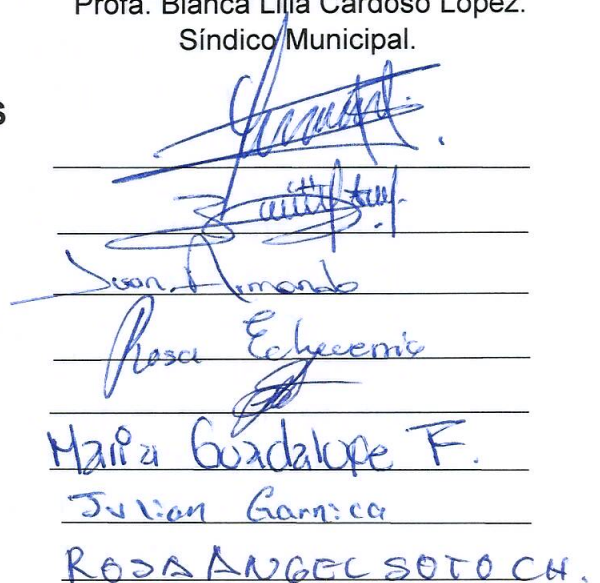 Profa. Blanca Lilia Cardoso López.
Síndico Municipal.
s
Juan Armando
Rosa Echeverria
Maria Guadalupe F.
Julian Garnica
ROSA ANGEL SOTO CH.